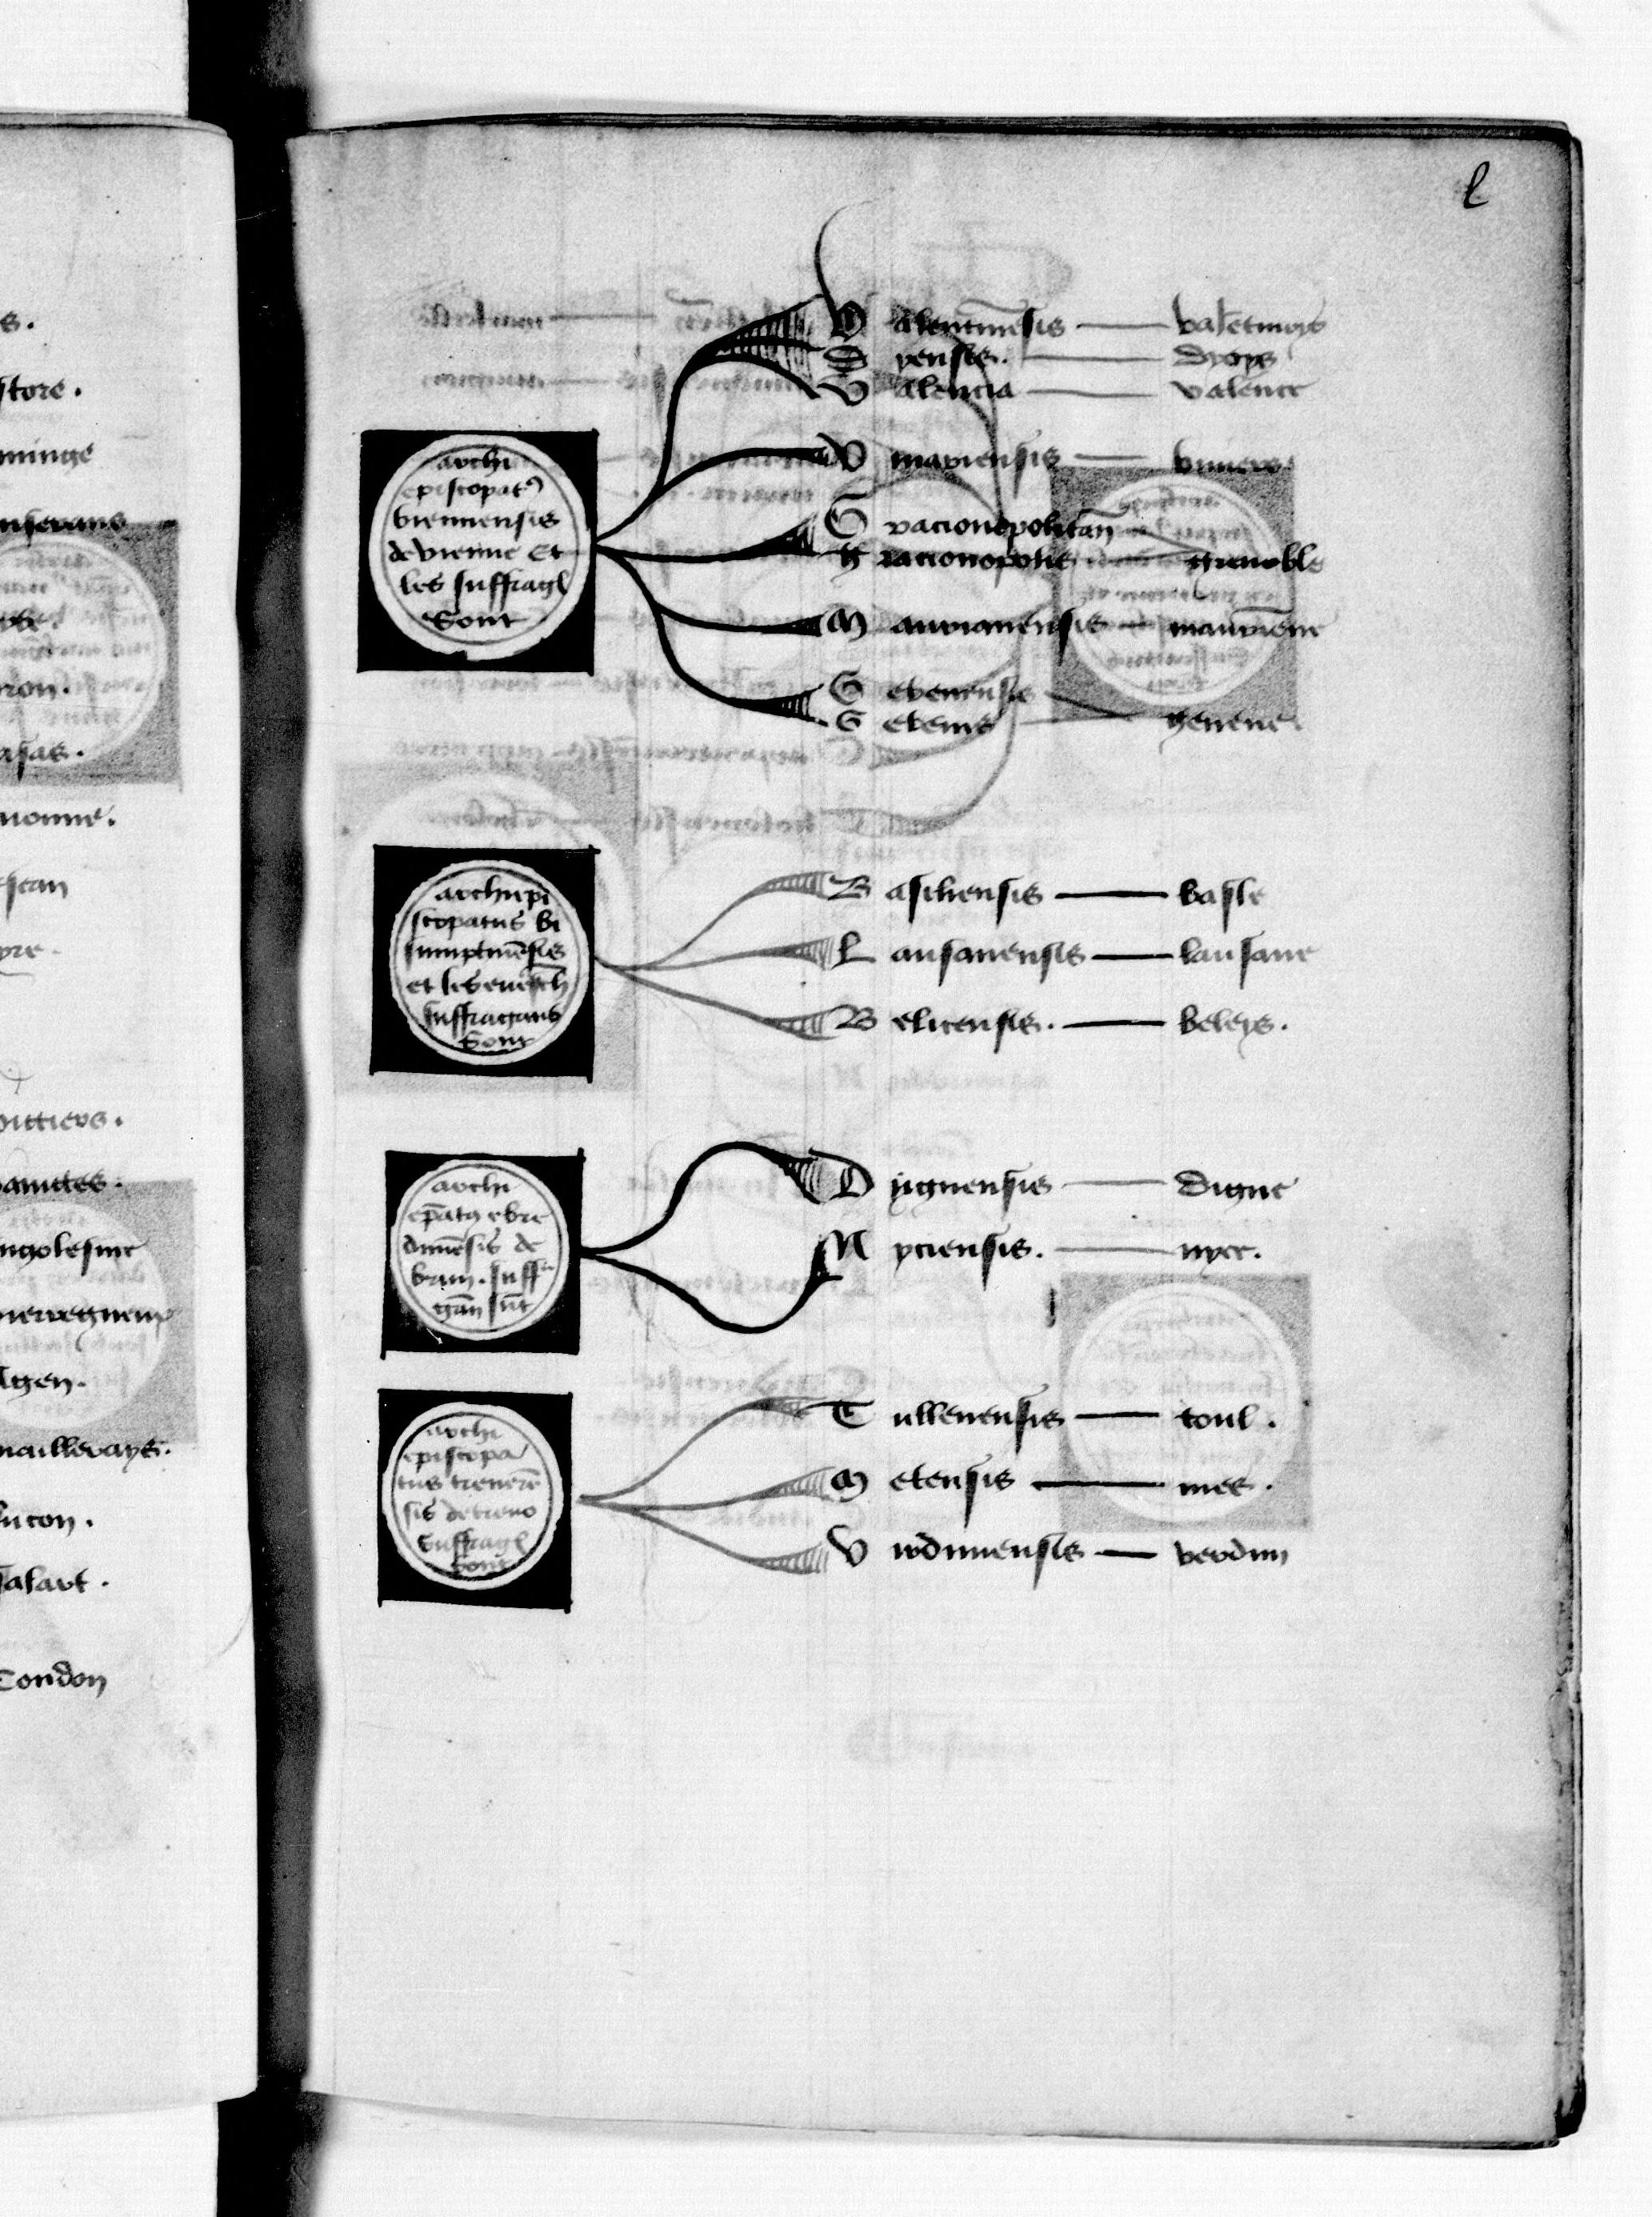 l
s.
store.
minge
nserans
ron.
asas.
nonne.
scan
yre.
oittiers.
ngolesme
Agen.
maillerays.
lucon.
salart.
Condon
archi
episcopatꝰ
viennensis
de vienne Et
les suffragl
Sont
V alentinēsis — valētinoys
D yensis. — dyoys
V alencia — valence
V ivariensis — viviers.
G racionopolitan̄
g racionopolis — grenoble
M aurianensis — mauriēne
G ebenensis
G ebenis — geneve.
archiepi
scopatus bi
suntinēsis
et les evesch
suffragans
Sont
B asiliensis — basle
L ausanensis — lausane
B elicensis. — beleys.
archi
ep̄atꝰ ebre
dunēsis de
brun. suff
gan̄ sūt
D ignensis — digne
N yciensis. — nyce.
archi
episcopa
tus treverē
sis de treve
Suffragl
Sont
T ullenensis — toul.
M etensis — mes.
V irdunensis — verdun